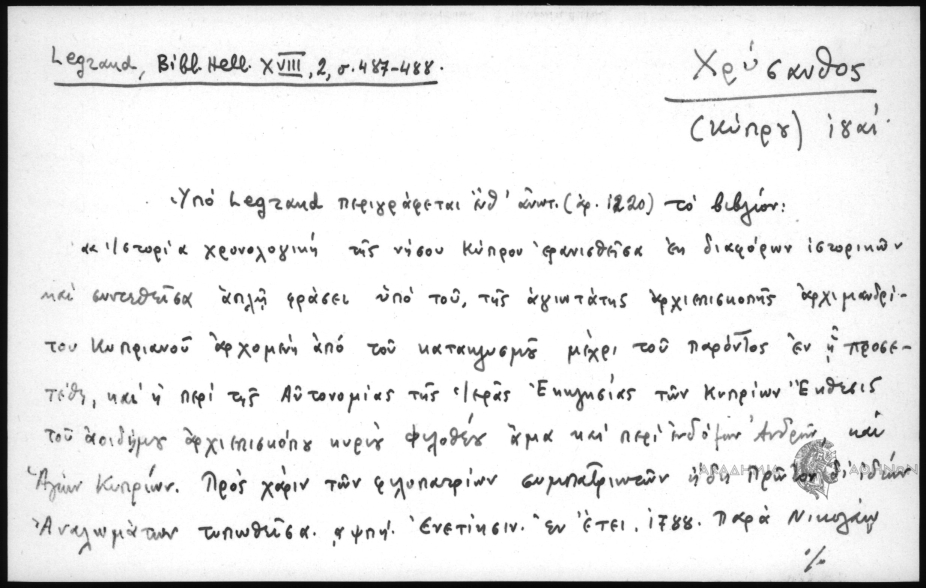 Legrand, Bibl. Hell. XVIII, 2, σ. 487-488.
Χρύσανθος
(Κύπρου)
Ὑπό Legrand περιγράφεται ἔνθ' ἀνωτ. (ἀρ. 1220) τό βιβλίον:
Ἱστορία χρονολογική τῆς νήσου Κύπρου ἐρανισθεῖσα ἐκ διαφόρων ἱστορικῶν
καί συντεθεῖσα ἁπλῇ φράσει ὑπό τοῦ, τῆς ἁγιωτάτης ἀρχιεπισκοπῆς ἀρχιμανδρί-
του Κυπριανοῦ ἀρχομένη ἀπό τοῦ κατακλυσμοῦ μέχρι τοῦ παρόντος ἐν ᾗ προσε-
τέθη, καί ἡ περί τῆς Αὐτονομίας τῆς Ἱερᾶς Ἐκκλησίας τῶν Κυπρίων Ἔκθεσις
τοῦ ἀοιδήμου ἀρχιεπισκόπου κυρίου Φιλοθέου ἅμα καί περί ἐνδόξων Ἀνδρῶν, καί
Ἁγίων Κυπρίων. Πρός χάριν τῶν φιλοπατρίων συμπατριωτῶν ἤδη Πρῶτον δι' ἰδίων
Ἀναλωμάτων τυπωθεῖσα. αψπή. Ἐνετίησιν. Ἐν ἔτει, 1788. Παρά Νικολάῳ
%